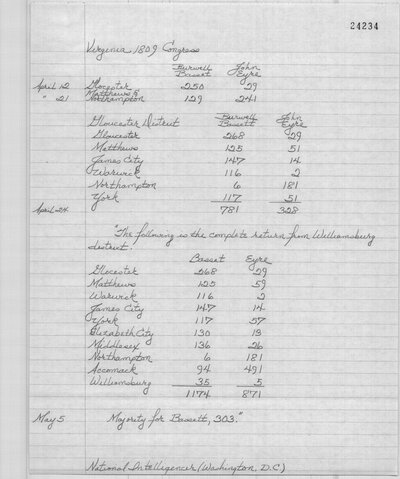 24234
Virginia, 1809 Congress
Burwell John
Basset Eyre
April 12 Glocester 250 29
Matthews &
" 21 Northampton 129 241
Gloucester District Burwell John
Bassett Eyre
Gloucester 268 29
Matthews 125 51
James City 147 14
Warwick 116 2
Northampton 6 181
York 117 51
781 328
April 24
"The following is the complete return from Williamsburg
district.
Basset Eyre
Glocester 268 29
Matthews 125 59
Warwick 116 2
James City 147 14
York 117 57
Elizabeth City 130 13
Middlesex 136 26
Northampton 6 181
Accomack 94 491
Williamsburg 35 5
1174 871
May 5 Majority for Bassett, 303."
National Intelligencer (Washington, D.C.)